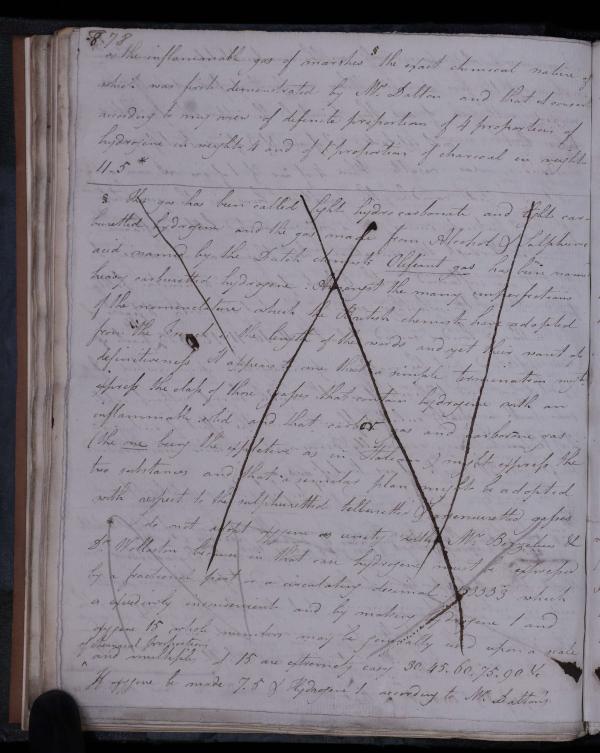 878
or the inflammable gas of marshes § the exact chemical nature of
which was first demonstrated by Mr. Dalton and that it consists
according to my view of definite proportions of 4 proportions of
hydrogene in weight 4 and of 1 proportion of charcoal in weight
11.5 *
§ This gas has been called light hydrocarbonate and light car-
buretted hydrogene and the gas made from Alcohol & Sulphuric
acid named by the Dutch chemists Olefiant gas has been named
heavy carburetted hydrogene: Amongst the many imperfections
of the nomenclature which the British chemists have adopted
from the French is the length of the words and yet their want of
definitiveness It appears to me that a simple termination might
express the class of those gasses that contain hydrogene with an
inflammable solid and that carbor gas and carborine gas
(the one being the expletive as in Italian) might express the
two substances and that a similar plan might be adopted
with respect to the sulphuretted telluretted & arsenuretted gasses
I do not adopt oxygene as unity with Mr. Berzelius &
Dr Wollaston because in that case hydrogene must be expressed
by a fractional part or a circulating decimal 33333 which
is evidently inconvenient and by making hydrogene 1 and
oxygene 15 whole numbers may be generally used upon a scale
of chemical proportions
and multiples of 15 are extremely easy 30.45.60.75.90 &c
If oxygene be made 7.5 & Hydrogene 1. according to Mr. Dalton's